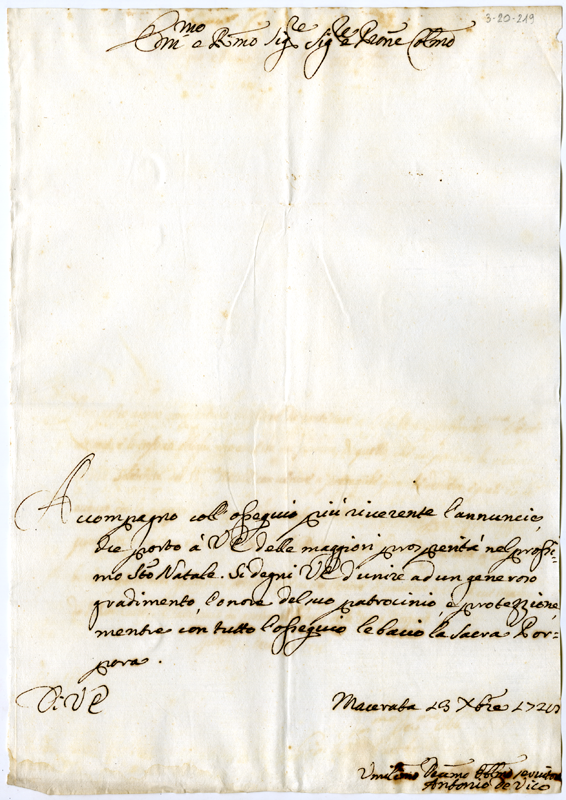 3-20-219
Em.mo e R.mo Sig.re Sig.re e Prone Col.mo
Accompagno coll'ossequio più riverente l'annuncio,
che porto à VE delle maggiori prosperità nel prossi=
mo Sto Natale. Si degni VE d'unire ad un generoso
gradimento, l'onore del suo patrocinio, e protezzione
mentre con tutto l'ossequio le bacio la Sacra Por=
pora.
Di VE
Macerata 13 Xbre
Umilissmo Oblmo servitore
Antonio de Vico